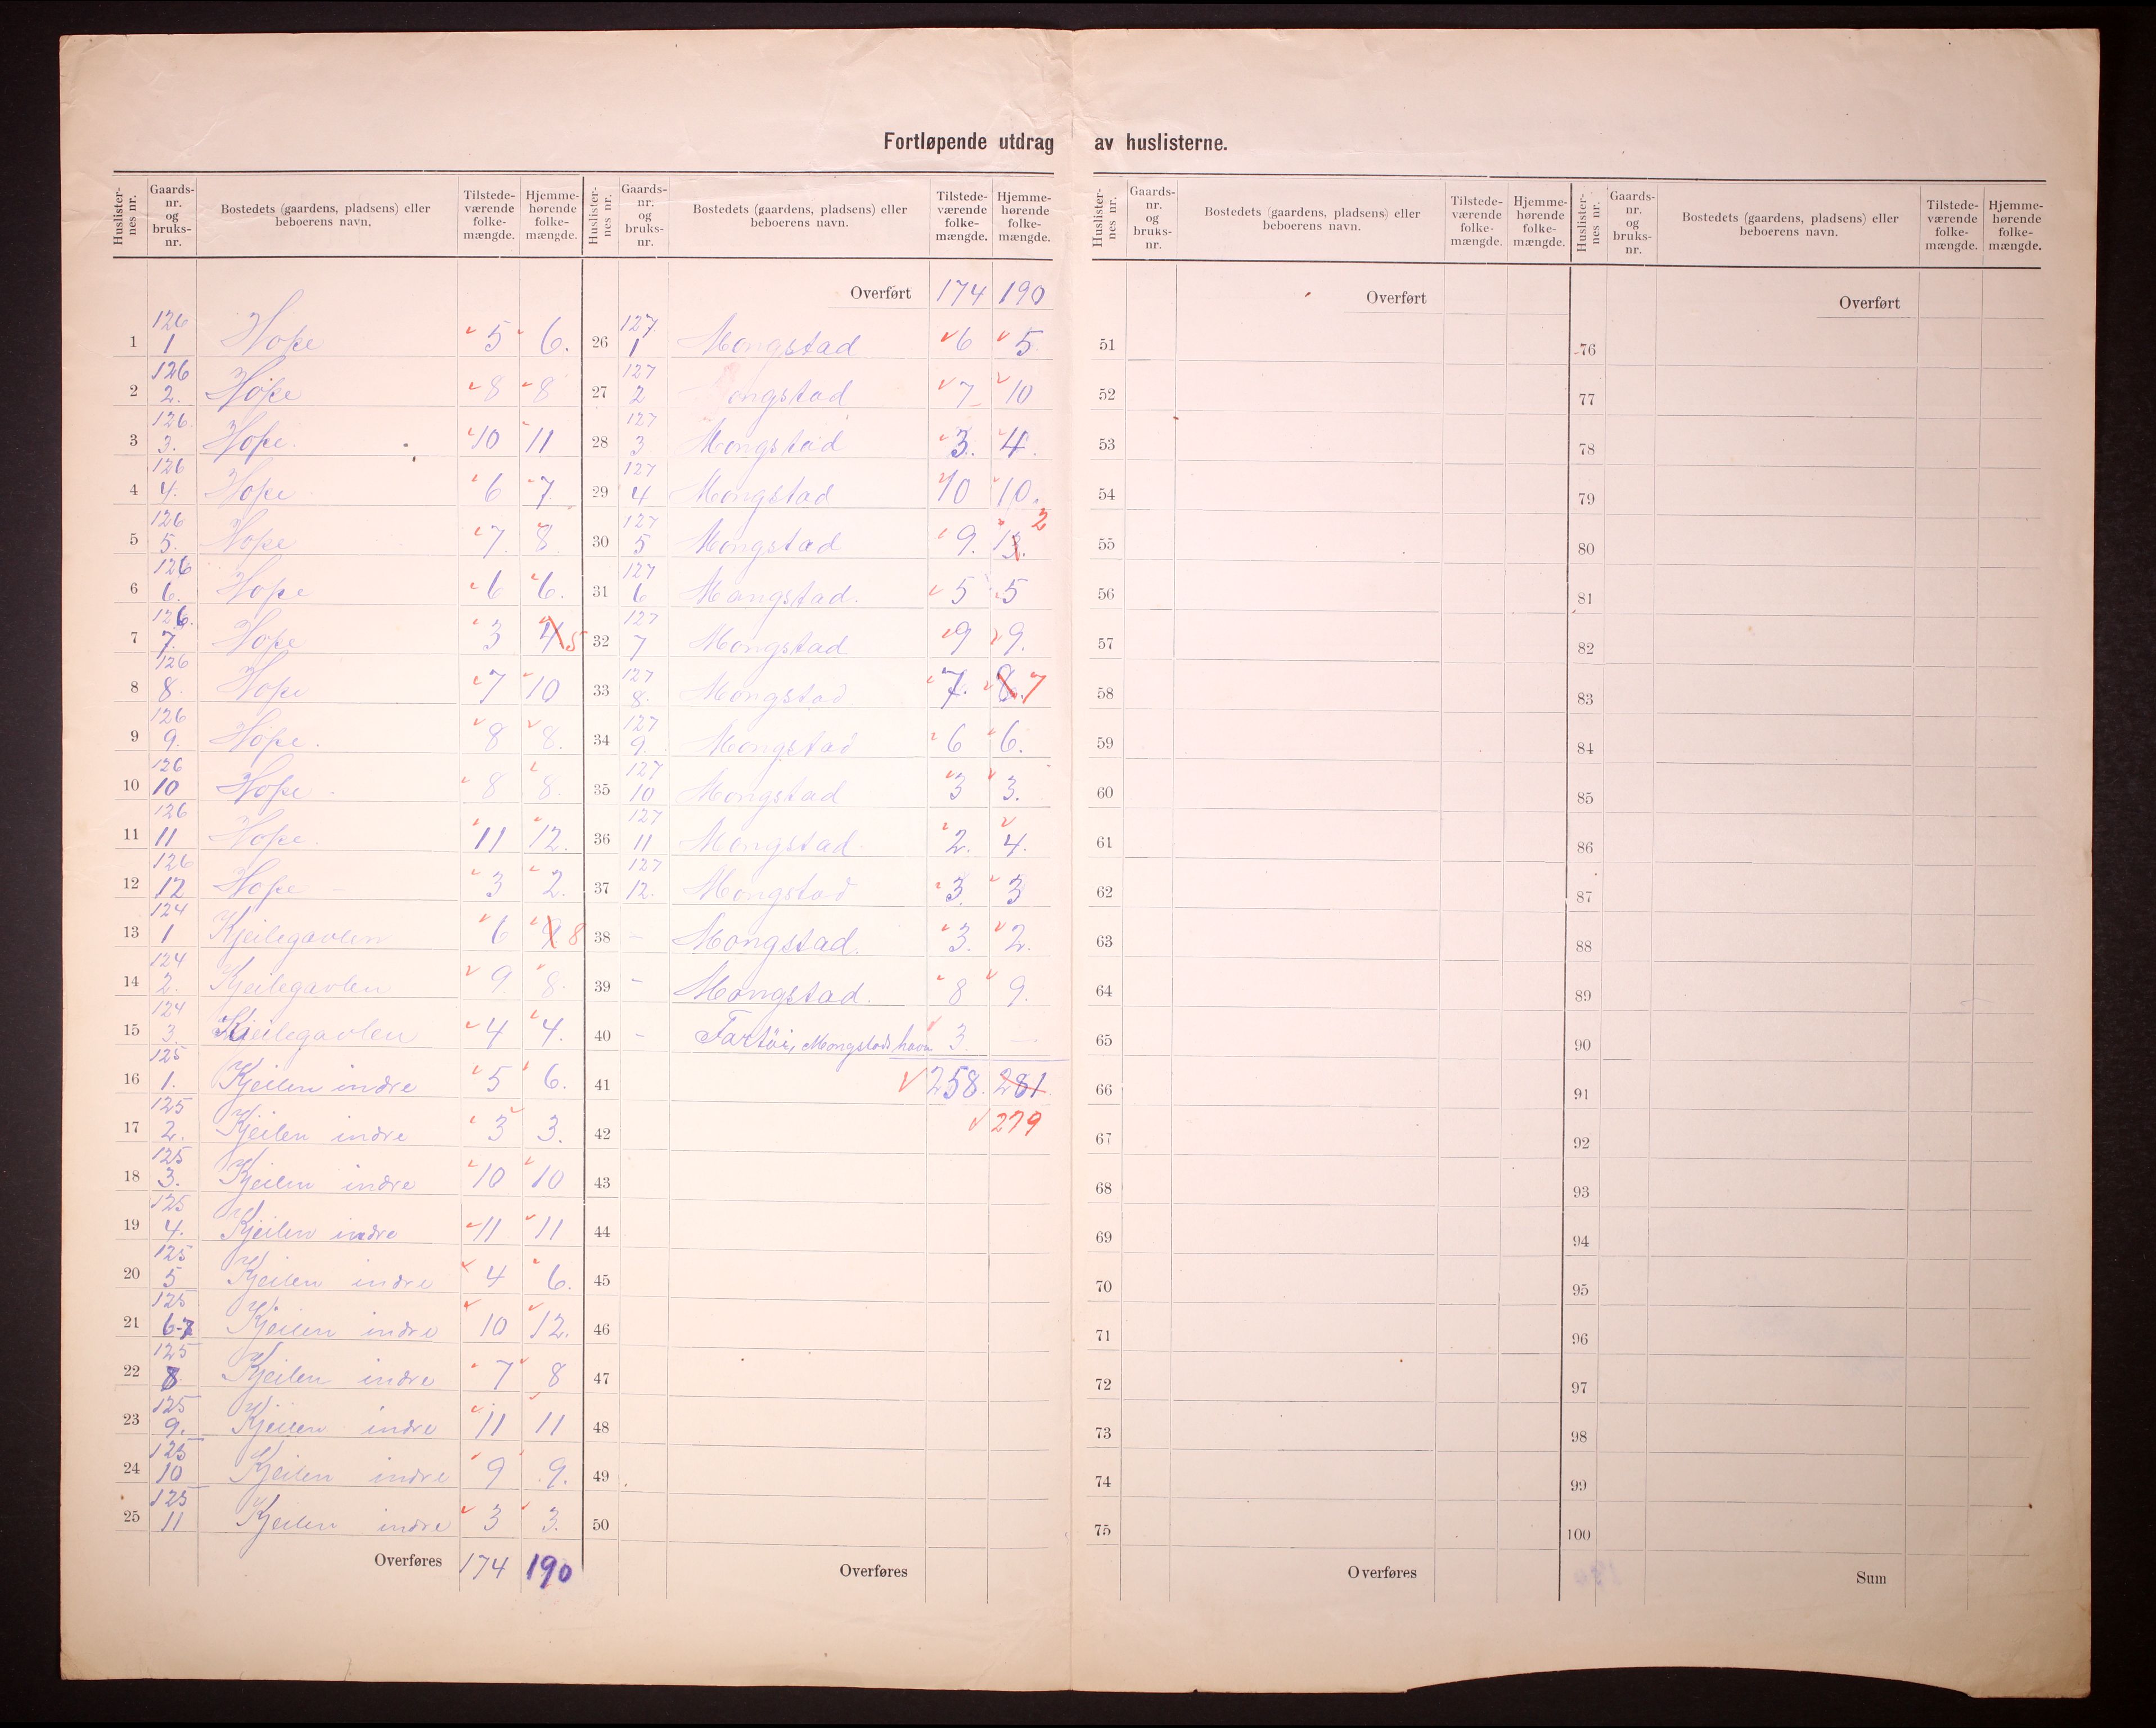 Fortløpende utdrag av huslisterne.
Huslisternes nr. Gaards-nr. og bruks-nr. Bostedets (gaardens, pladsens) eller beboerens navn. Tilstede-værende folke-mængde. Hjemme-hørende folke-mængde.
1 126 1 Hope 5 6.
2 126 2. Hope 8 8
3 126. 3. Hope. 10 11
4 126 4. Hope 6 7.
5 126 5. Hope 7. 8.
6 126 6. Hope 6 6.
7 126. 7. Hope 3 4 5
8 126 8. Hope 7 10
9 126 9. Hope. 8 8.
10 126 10 Hope 8 8.
11 126 11 Hope. 11 12.
12 126 12 Hope 3 2.
13 124 1 Kjeilegavlen 6 9 8
14 124 2. Kjeilegavlen 9 8.
15 124 3. Kjeilegavlen 4 4.
16 125 1. Kjeilen indre 5 6.
17 125 2. Kjeilen indre 3 3.
18 125 3. Kjeilen indre 10 10
19 125 4. Kjeilen indre 11 11
20 125 5 Kjeilen indre 4 6.
21 125 6-7 Kjeilen indre 10 12.
22 125 8 Kjeilen indre 7 8
23 125 9. Kjeilen indre 11 11
24 125 10 Kjeilen indre 9 9.
25 125 11 Kjeilen indre 3 3.
Overføres 174 190
Huslisternes nr. Gaards-nr. og bruks-nr. Bostedets (gaardens, pladsens) eller beboerens navn. Tilstede-værende folke-mængde. Hjemme-hørende folke-mængde.
Overført 174 190
26 127. 1 Mongstad 6 5.
27 127 2 Mongstad 7 10
28 127 3 Mongstad 3. 4.
29 127 4 Mongstad 10 10.
30 127 5 Mongstad 9. 13. 2
31 127 6 Mongstad. 5 5
32 127 7 Mongstad 9 9.
33 127 8. Mongstad 7. 8. 7
34 127 9. Mongstad 6 6.
35 127 10 Mongstad 3 3.
36 127 11 Mongstad. 2. 4.
37 127 12. Mongstad 3. 3
38 - Mongstad. 3. 2.
39 - Mongstad. 8 9.
40 - Fartöi, Mongstads havn 3. -
41 258. 281.
279
42
43
44
45
46
47
48
49
50
Overføres
Huslisternes nr. Gaards-nr. og bruks-nr. Bostedets (gaardens, pladsens) eller beboerens navn. Tilstede-værende folke-mængde. Hjemme-hørende folke-mængde.
Overført
51
52
53
54
55
56
57
58
59
60
61
62
63
64
65
66
67
68
69
70
71
72
73
74
75
Overføres
Huslisternes nr. Gaards-nr. og bruks-nr. Bostedets (gaardens, pladsens) eller beboerens navn. Tilstede-værende folke-mængde. Hjemme-hørende folke-mængde.
Overført
76
77
78
79
80
81
82
83
84
85
86
87
88
89
90
91
92
93
94
95
96
97
98
99
100
Sum